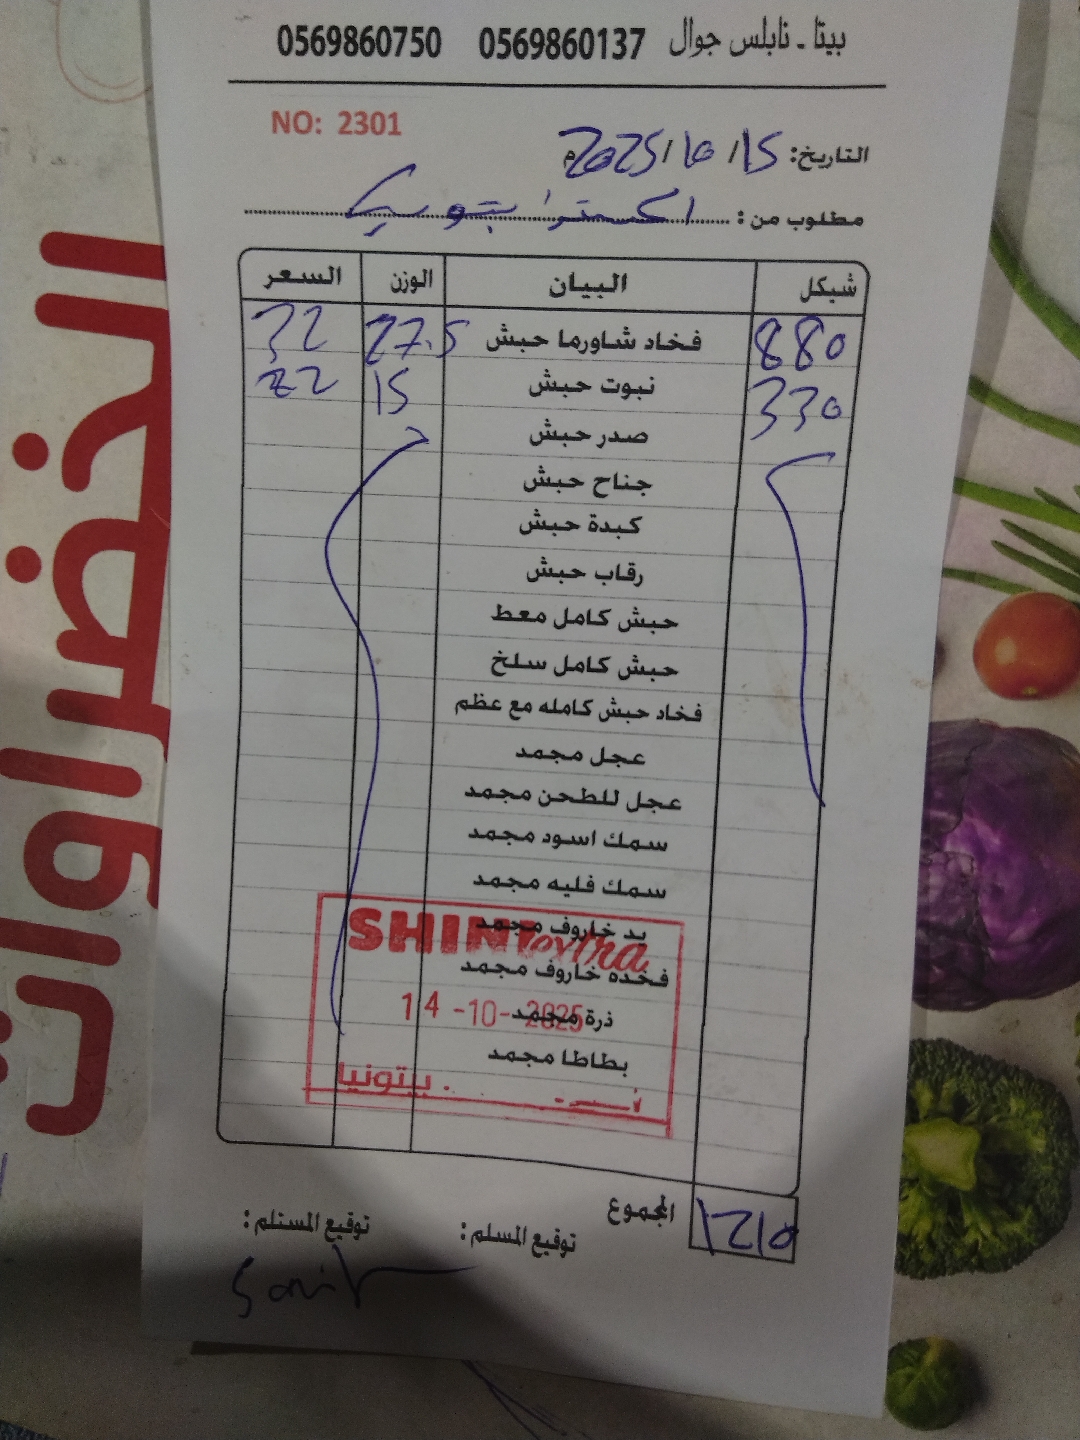 بيتا - نابلس جوال 0569860137 0569860750
NO: 2301
التاريخ: 15/10/2025م
مطلوب من: اكسترا بيتونيا
شيكل البيان الوزن السعر
880 فخاد شاورما حبش 27.5 32
330 نبوت حبش 15 22
صدر حبش
جناح حبش
كبدة حبش
رقاب حبش
حبش كامل معط
حبش كامل سلخ
فخاد حبش كامله مع عظم
عجل مجمد
عجل للطحن مجمد
سمك اسود مجمد
سمك فليه مجمد
يد خاروف مجمد
SHINI extra
فخده خاروف مجمد
ذرة مجمد
14-10-2025
بطاطا مجمد
بيتونيا
المجموع 1210
توقيع المسلم: توقيع المستلم:
الخضراوات